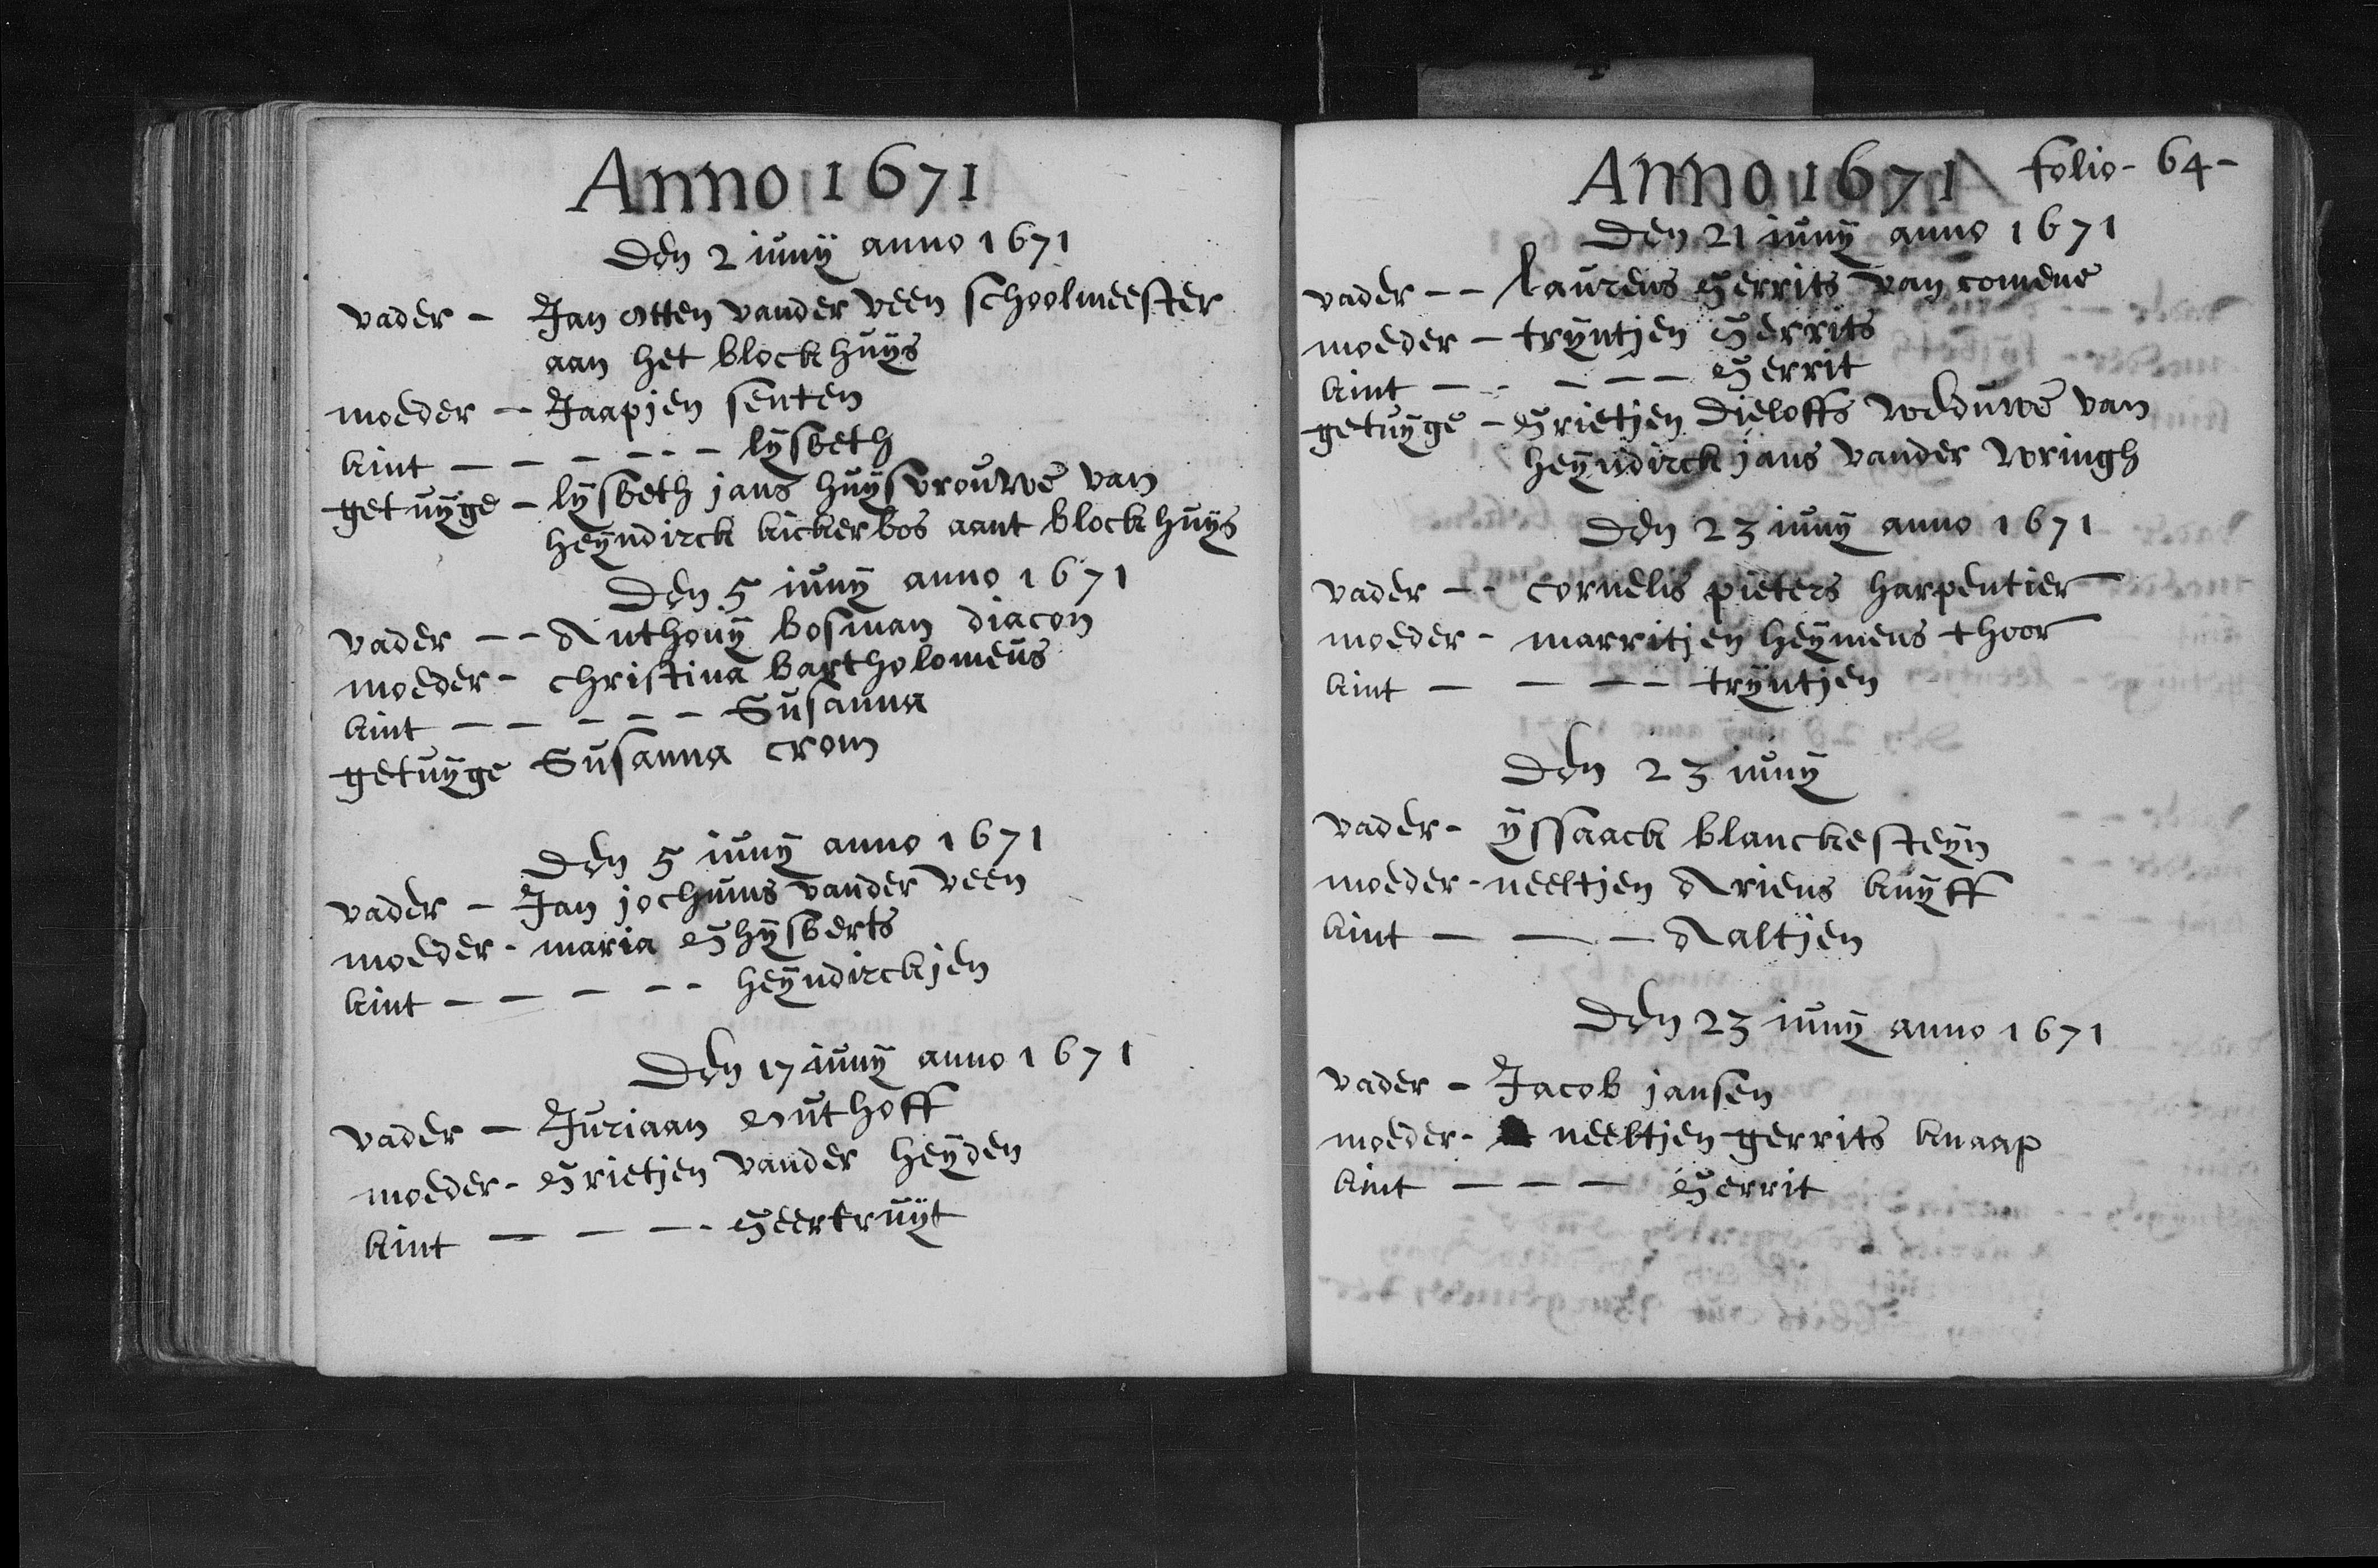 Anno 1671
Den 2 iuny anno 1671
vader - Jan otten vander veen schoolmeester
aan het blockhuys
moeder - Jaapjen senten
kint - - - - - - lysbeth
getuyge - lysbeth jans huysvrouwe van
heyndirck kickerbos aant blockhuys
Den 5 iuny anno 1671
vader - - Anthony bosman diacon
moeder - christina bartholomeus
kint - - - - - Susanna
getuyge Susanna crom
Den 5 iuny anno 1671
vader - Jan jochums vander veen
moeder - maria Ghysberts
kint - - - - - heyndirckjen
Den 17 iuny anno 1671
vader - Juriaan outhoff
moeder - Grietjen vander heyden
kint - - - - Geertruyt
Anno 1671 folio - 64 -
Den 21 iuny anno 1671
vader - - laurens Gerrits van comene
moeder - tryntjen Gerrits
kint - - - - - Gerrit
getuyge - Grietjen dieloffs weduwe van
heyndirck jans vander wringh
Den 23 iuny anno 1671
vader - - cornelis pieters harpentier
moeder - marritjen heymens thoor
kint - - - - tryntjen
Den 23 iuny
vader - yssaack blanckesteyn
moeder - neeltjen Ariens kuyff
kint - - - Aaltjen
Den 23 iuny anno 1671
vader - Jacob jansen
moeder - neeltjen gerrits knaap
kint - - - Gerrit